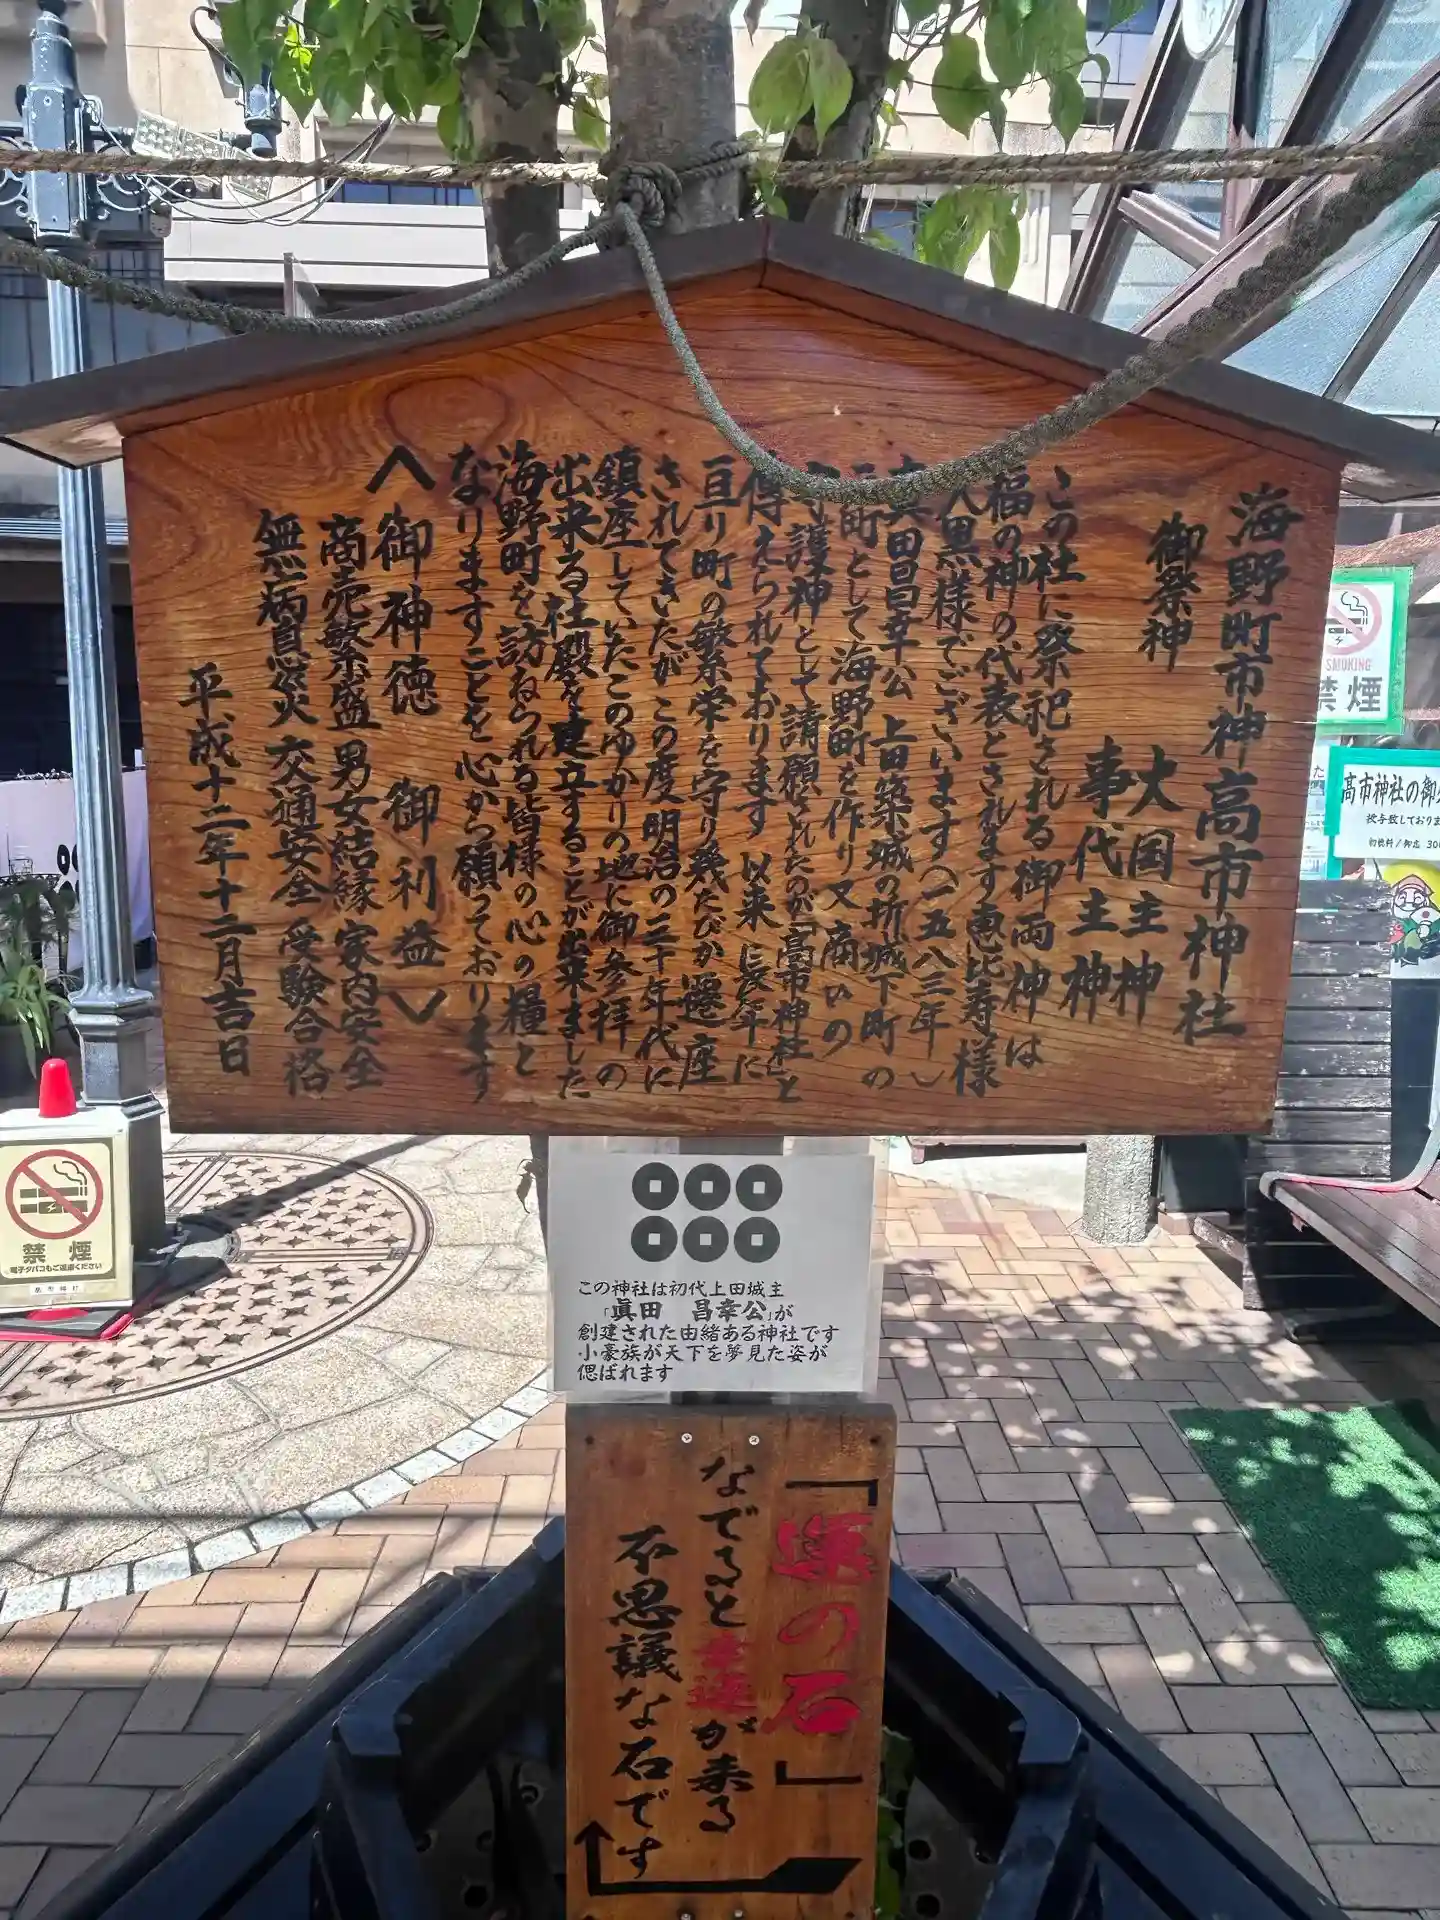 海野町市神高市神社
御祭神　大国主神
事代主神
この社に祭祀される御両神は
福の神の代表とされます恵比寿様
大黒様でございます（一五八三年）
真田昌幸公上田築城の折城下町の
元町として海野町を作り又商いの
守護神として請願されたのが「高市神社」と
伝えられております　以来に長年に
亘り町の繁栄を守り幾たびか遷座
されてきたがこの度明治の三十年代に
鎮座していたこのゆかりの地に御参拝の
出来る社殿を建立することが出来ました
海野町を訪ねられる皆様の心の糧と
なりますことを心から願っております
〈御神徳　御利益〉
商売繁盛　男女結縁　家内安全
無病息災　交通安全　受験合格
平成十二年十二月吉日
この神社は初代上田城主
「眞田　昌幸公」が
創建された由緒ある神社です
小豪族が天下を夢見た姿が
偲ばれます
「運の石」
なでると幸運が来る
不思議な石です
SMOKING
禁煙
高市神社の御
授与致しておりま
初穂料/御志 30
禁煙
電子タバコもご遠慮ください
高市神社